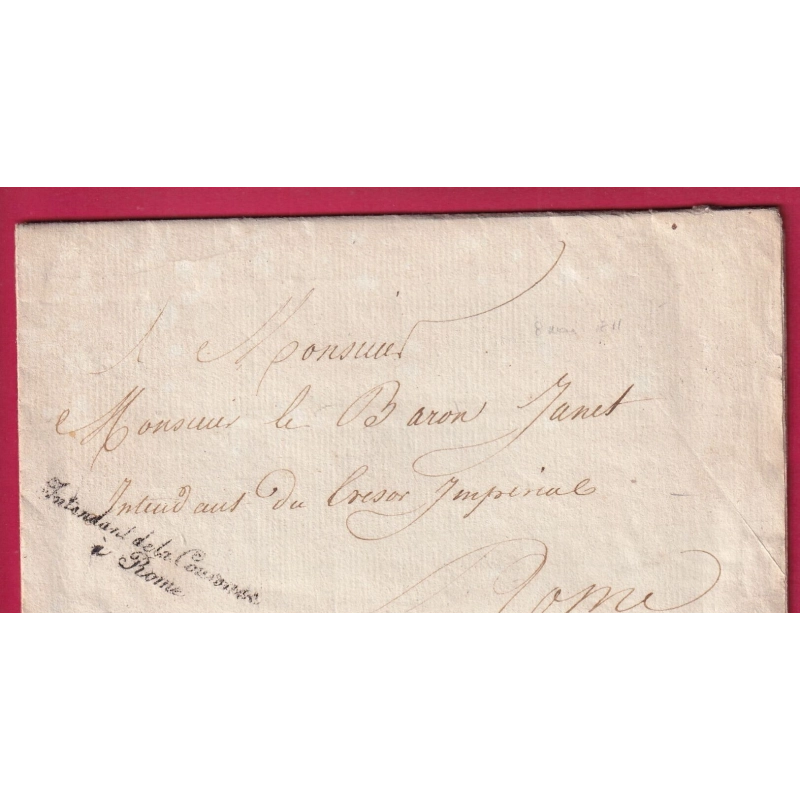 A Monsieur
Monsieur le Baron Janet
Intendant du Tresor Imperial
Intendant de la Couronne
à Rome
Rome